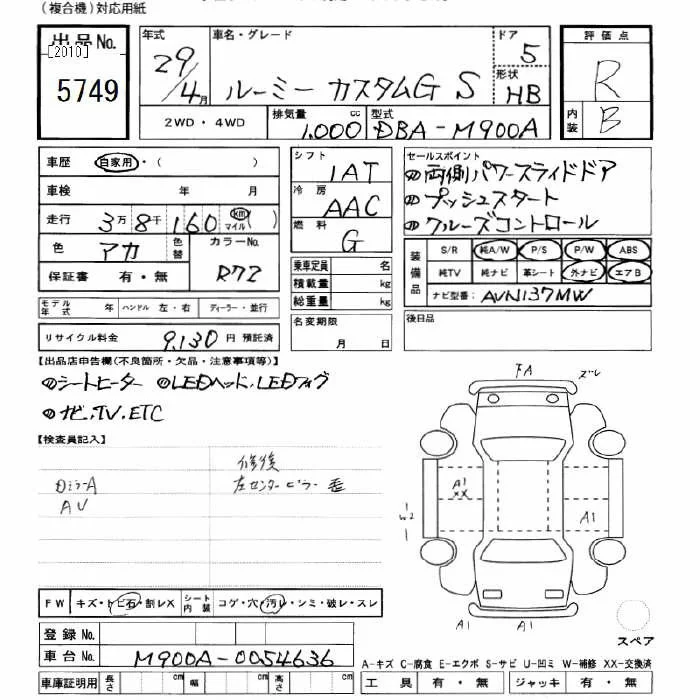 (複合機)対応用紙
出品No.
[2010]
5749
年式 29/4月
車名・グレード ルーミー カスタムG S
ドア 5
形状 HB
評価点 R
内装 B
2WD・4WD
排気量 1,000 cc
型式 DBA-M900A
車歴 自家用・( )
車検 年 月
走行 3万8千160 km マイル( )
色 アカ 色替 カラーNo. R72
保証書 有・無
シフト IAT
冷房 AAC
燃料 G
乗車定員 名
積載量 kg
総重量 kg
セールスポイント
両側パワースライドドア
プッシュスタート
クルーズコントロール
装備品 S/R 純A/W P/S P/W ABS
純TV 純ナビ 革シート 外ナビ エアB
ナビ型番: AVN137MW
モデル年式 年 ハンドル 左・右 ディーラー・並行
名変期限 月 日
後日品
リサイクル料金 9,130 円 預託済
【出品店申告欄(不良箇所・欠品・注意事項等)】
シートヒーター LEDヘッド,LEDフォグ
ナビ,TV,ETC
【検査員記入】
修後
DミラーA 左センターピラー
AU
FA ズレ
A1
XX
W2
A1
A1 A1
スペア
FW キズ・トビ石・割レX シート内装 コゲ・穴・汚レ・シミ・破レ・スレ
登録No.
車台No. M900A-0054636
A-キズ C-腐食 E-エクボ S-サビ U-凹ミ W-補修 XX-交換済
車庫証明用 長さ cm 幅 cm 高さ cm
工具 有・無 ジャッキ 有・無